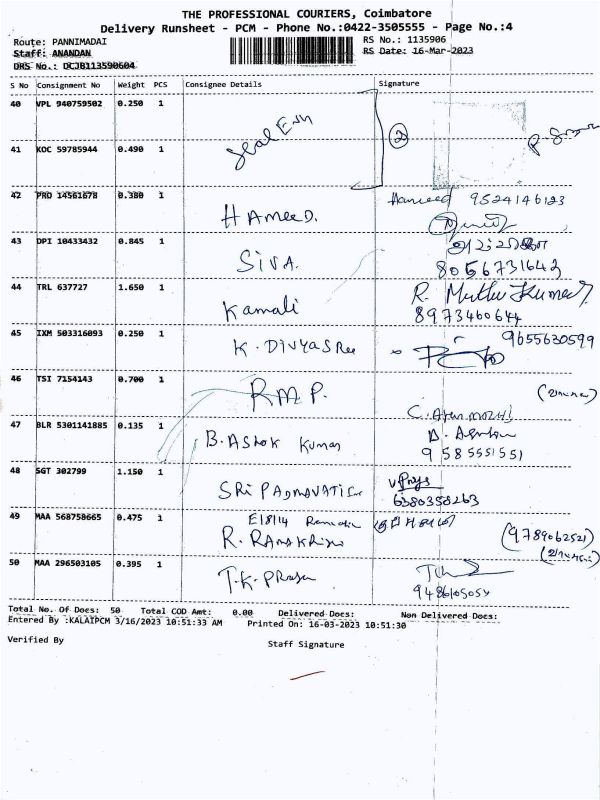 THE PROFESSIONAL COURIERS, Coimbatore
Delivery Runsheet - PCM - Phone No.:0422-3505555 - Page No.:4
Route: PANNIMADAI
RS No.: 1135906
Staff: ANANDAN
RS Date: 16-Mar-2023
DRS No.: DCJB113590604
S No Consignment No Weight PCS Consignee Details Signature
40 VPL 940759502 0.250 1
2
41 KOC 59785944 0.490 1
Seal Em
42 PRD 14561678 0.380 1
HAMEED. Hameed
43 DPI 10433432 0.845 1
SIVA. 8056731643
44 TRL 637727 1.650 1
Kamali R. Muthu Kumar
8973460644
45 IXM 503316093 0.250 1 9655630599
K. DIVYASRee
46 TSI 7154143 0.700 1
RMP.
47 BLR 5301141885 0.135 1
B. ASHOK Kumar
9585551551
48 SGT 302799 1.150 1
SRI 6380358263
49 MAA 568758665 0.475 1
R. (9789062521)
50 MAA 296503105 0.395 1
T.K. 
Total No. Of Docs: 50 Total COD Amt: 0.00 Delivered Docs: Non Delivered Docs:
Entered By :KALAIPCM 3/16/2023 10:51:33 AM Printed On: 16-03-2023 10:51:30
Verified By Staff Signature